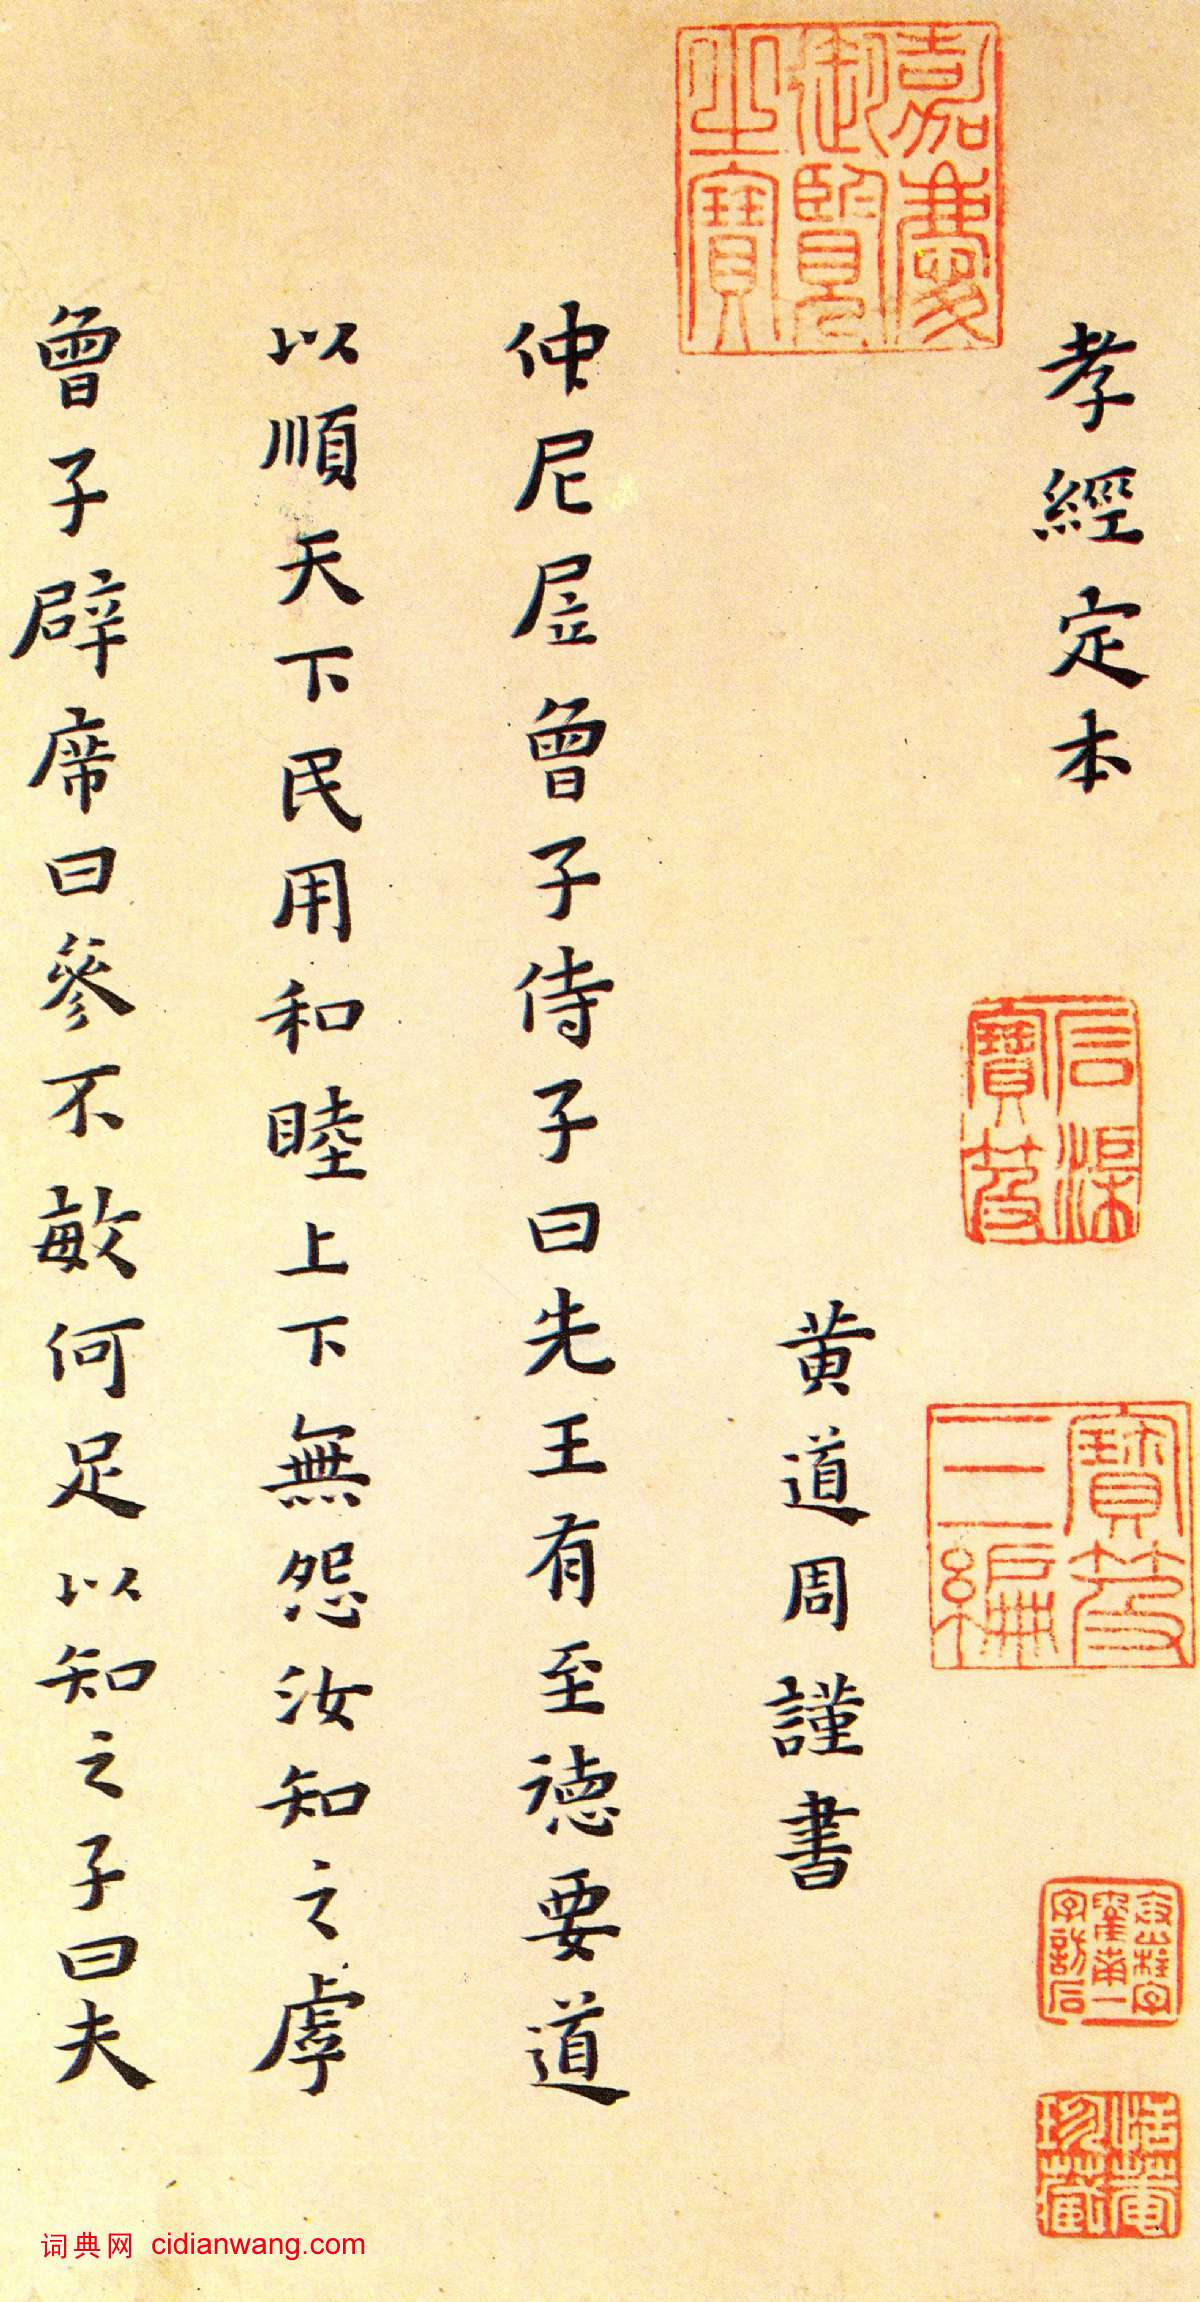 孝經定本
黄道周謹書
仲尼凥曾子侍子曰先王有至德要道
以順天下民用和睦上下無怨汝知之虖
曾子辟席曰參不敏何足以知之子曰夫
嘉慶御覽之寶
石渠寶笈
寶笈三編
恬菴珍藏
词典网 cidianwang.com